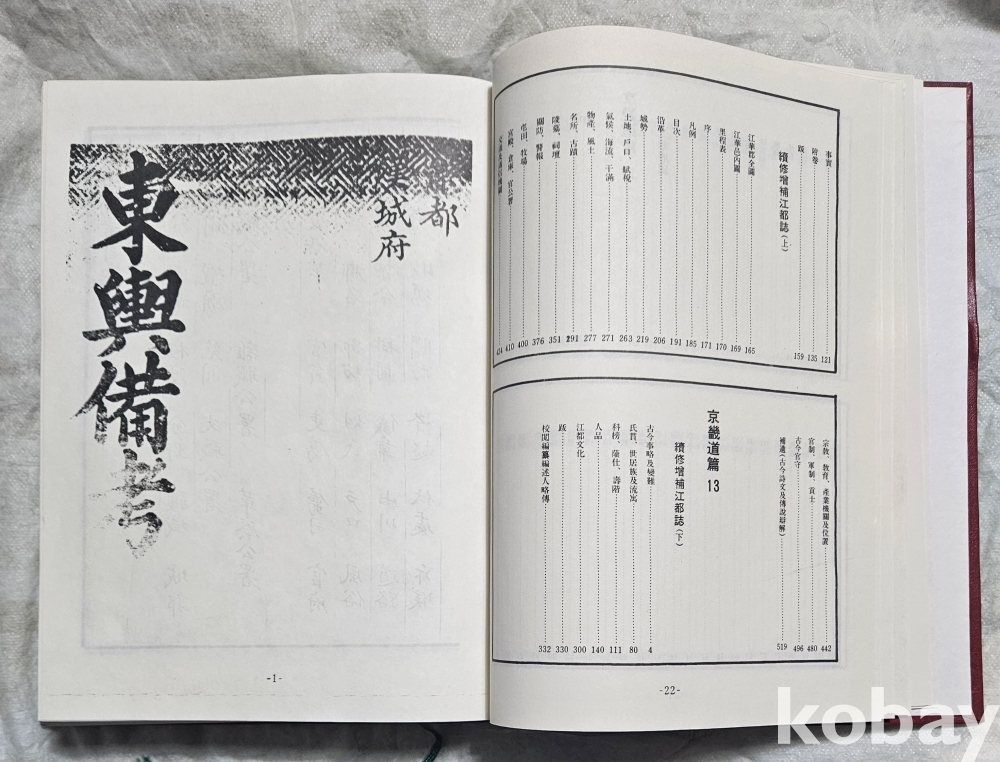 事實……121
附卷……135
跋……159
續修增補江都誌(上)
江華郡全圖……165
江華邑內圖……169
里程表……170
序……171
凡例……185
目次……191
沿革……206
城勢……219
土地、戶口、賦稅……263
氣候、海流、干滿……271
物產、風土……277
名所、古蹟……291
陵墓、祠壇……351
關防、警報……376
屯田、牧場……400
宮殿、倉庫、官公署……410
宗敎、敎育、產業機關及位置……442
官制、軍制、貢士……480
古今官守……496
補遺(古今詩文及傳說辯解)……519
京畿道篇 13
續修增補江都誌(下)
古今事略及變難……4
氏貫、世居族及流寓……80
科榜、蔭仕、壽階……111
人品……140
江都文化……300
跋……330
校閱編纂編述人略傳……332
-22-
都
城府
東輿備考
-1-
kobay